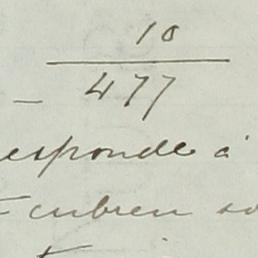 10
477
esponde á
cubren so